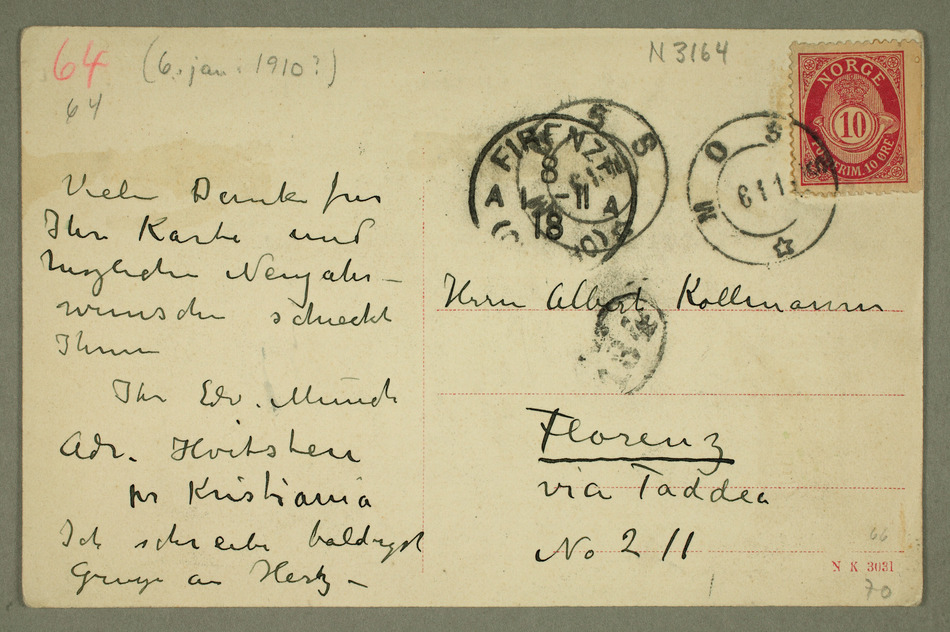 64
(6. jan. 1910?)
N 3164
64
NORGE
10
FRIM. 10 ØRE
FIRENZE
A
A
8 - 11
18
MOSS
6 1 1
Vielen Dank für
Ihre Karte und
herzlichen Neujahrs-
wunschen schickt
Ihnen
Ihr Edv. Munch
Adr. Hvitsten
pr Kristiania
Ich schreibe baldigst
Grüsse an Herz –
Herrn Albert Kollmann
Florenz
via Taddea
No 2 II
66
N K 3031
70